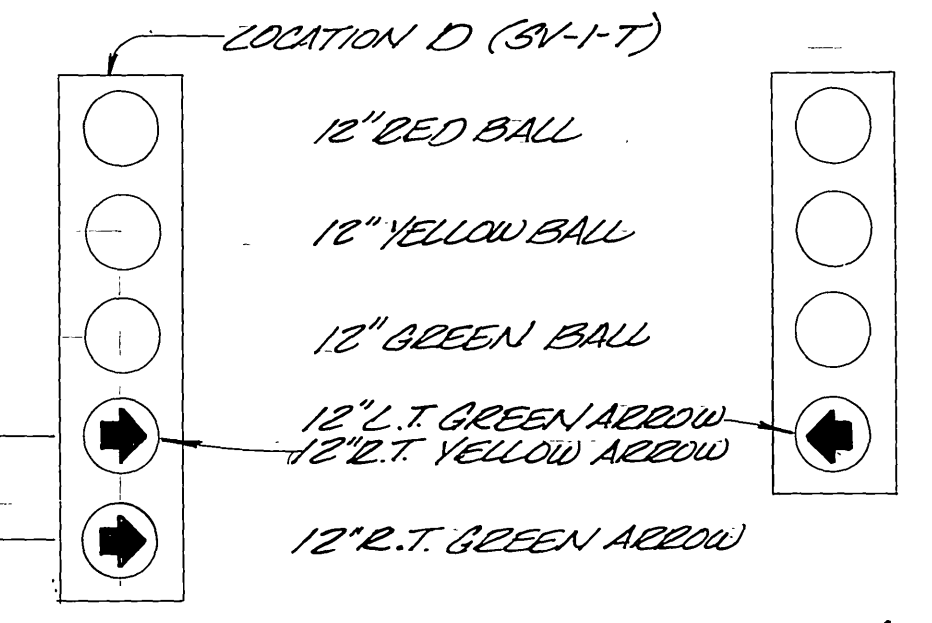 LOCATION D (SV-1-T)
12" RED BALL
12" YELLOW BALL
12" GREEN BALL
12" L.T. GREEN ARROW
12" R.T. YELLOW ARROW
12" R.T. GREEN ARROW